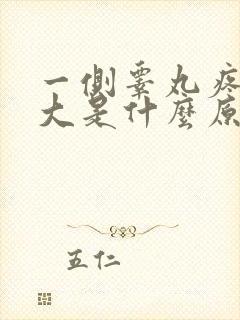 一側睾丸疼
大是什麼原
五仁